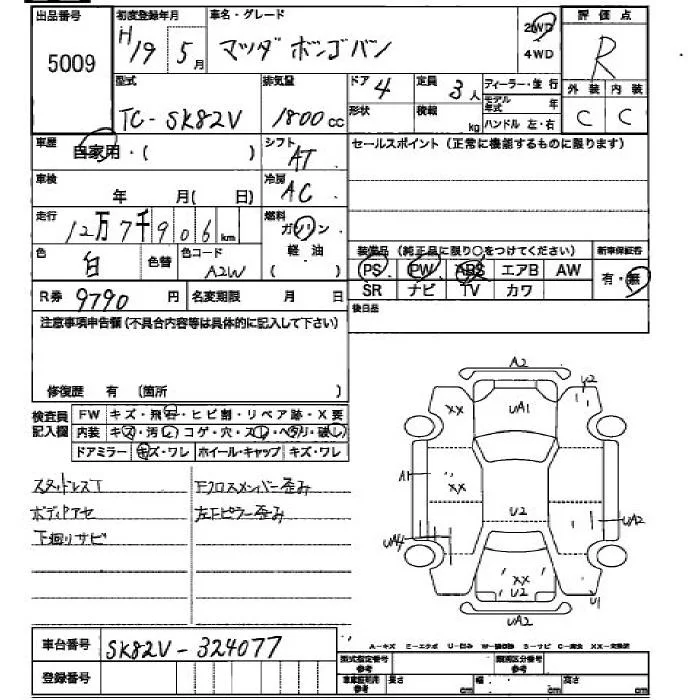 出品番号 初度登録年月 車名・グレード 評価点
5009 H/19 5月 マツダ ボンゴバン 2WD 4WD R
型式 排気量 ドア 4 定員 3人 ディーラー・並行 外装 内装
TC-SK82V 1800cc 形状 積載 kg モデル年式 年 ハンドル 左・右 C C
車歴 自家用・( ) シフト AT セールスポイント (正常に機能するものに限ります)
車検 年 月( 日) 冷房 AC
走行 12万7千906km 燃料 ガソリン
色 白 色替 色コード A2W 軽油 ( )
装備品 (純正品に限り○をつけてください) 新車保証書
PS PW ABS エアB AW 有・無
R券 9790円 名変期限 月 日 SR ナビ TV カワ
注意事項申告欄(不具合内容等は具体的に記入して下さい) 後日品
修復歴 有 (箇所 )
検査員記入欄 FW キズ・飛石・ヒビ割・リペア跡・X要
内装 キズ・汚レ・コゲ・穴・スレ・ヘタリ・破レ
ドアミラー キズ・ワレ ホイール・キャップ キズ・ワレ
スタッドレスT Fクロスメンバー歪み
ボディPアセ 左Fピラー歪み
下廻りサビ
A2
XX UA1 U2
A1 XX U2 UA2
UA4
XX U2 U1
UA2
車台番号 SK82V-324077
登録番号
A-キズ E-エクボ U-凹み S-サビ XX-交換済
型式指定番号 参考 類別区分番号 参考
車庫証明用 参考 長さ cm 幅 cm 高さ cm